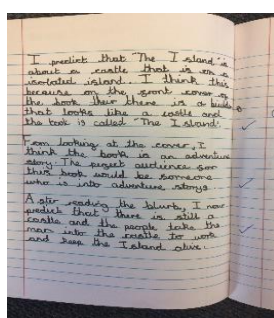 I predict that "The Island" is
about a castle that is on a
isolated island. I think this
because on the front cover of
the book their there is a
that looks like a castle and
the book is called "The Island".
From looking at the cover, I
think the book is an adventure
story. The audience for
this book would be someone
who is into adventure storys
After reading the blurb, I now
predict that there is still a
castle and the people take the
man into the castle to work
and keep the Island alive.